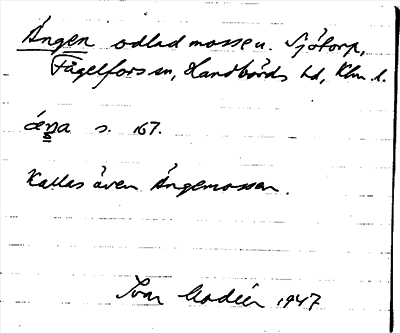 Ängen odlad mosse u. Sjötorp,
Fågelfors sn, Handbörds hd, Klm. l.
s. 167.
Kallas även Ängemossen.
Ivar Modéer 1947